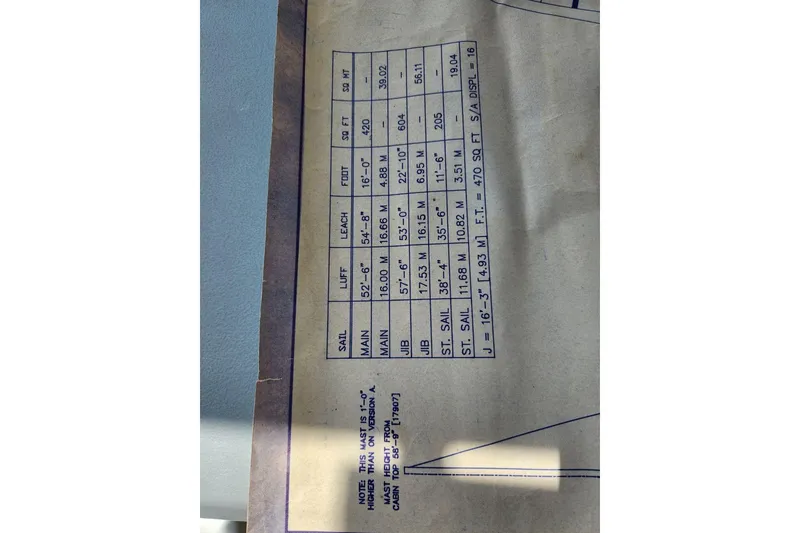 SAIL LUFF LEACH FOOT SQ FT SQ MT
MAIN 52'-6" 54'-8" 16'-0" 420 -
MAIN 16.00 M 16.66 M 4.88 M - 39.02
JIB 57'-6" 53'-0" 22'-10" 604 -
JIB 17.53 M 16.15 M 6.95 M - 56.11
ST. SAIL 38'-4" 35'-6" 11'-6" 205 -
ST. SAIL 11.68 M 10.82 M 3.51 M - 19.04
J = 16'-3" [4.93 M] F.T. = 470 SQ FT S/A DISPL = 16
NOTE: THIS MAST IS 1'-0"
HIGHER THAN ON VERSION A.
MAST HEIGHT FROM
CABIN TOP 58'-9" [17907]